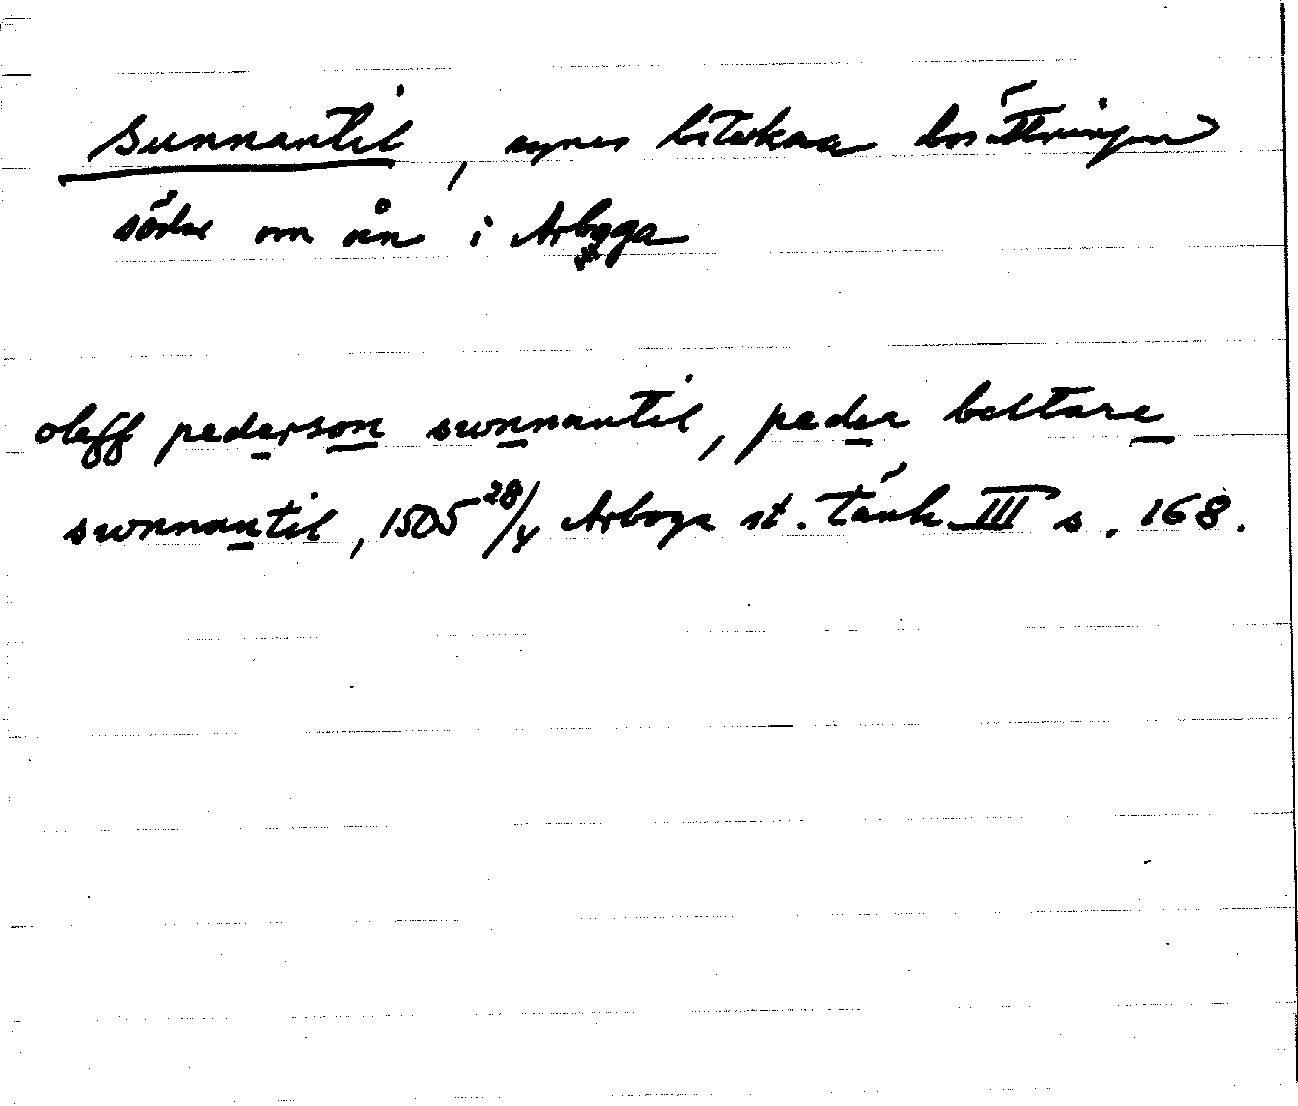 Sunnantil, synes beteckna bosättningen
söder om ån i Arboga
oleff pederson swnnantil, peder beltare
swnnantil, 1505 28/4 Arboga st. tänk. III s. 168.